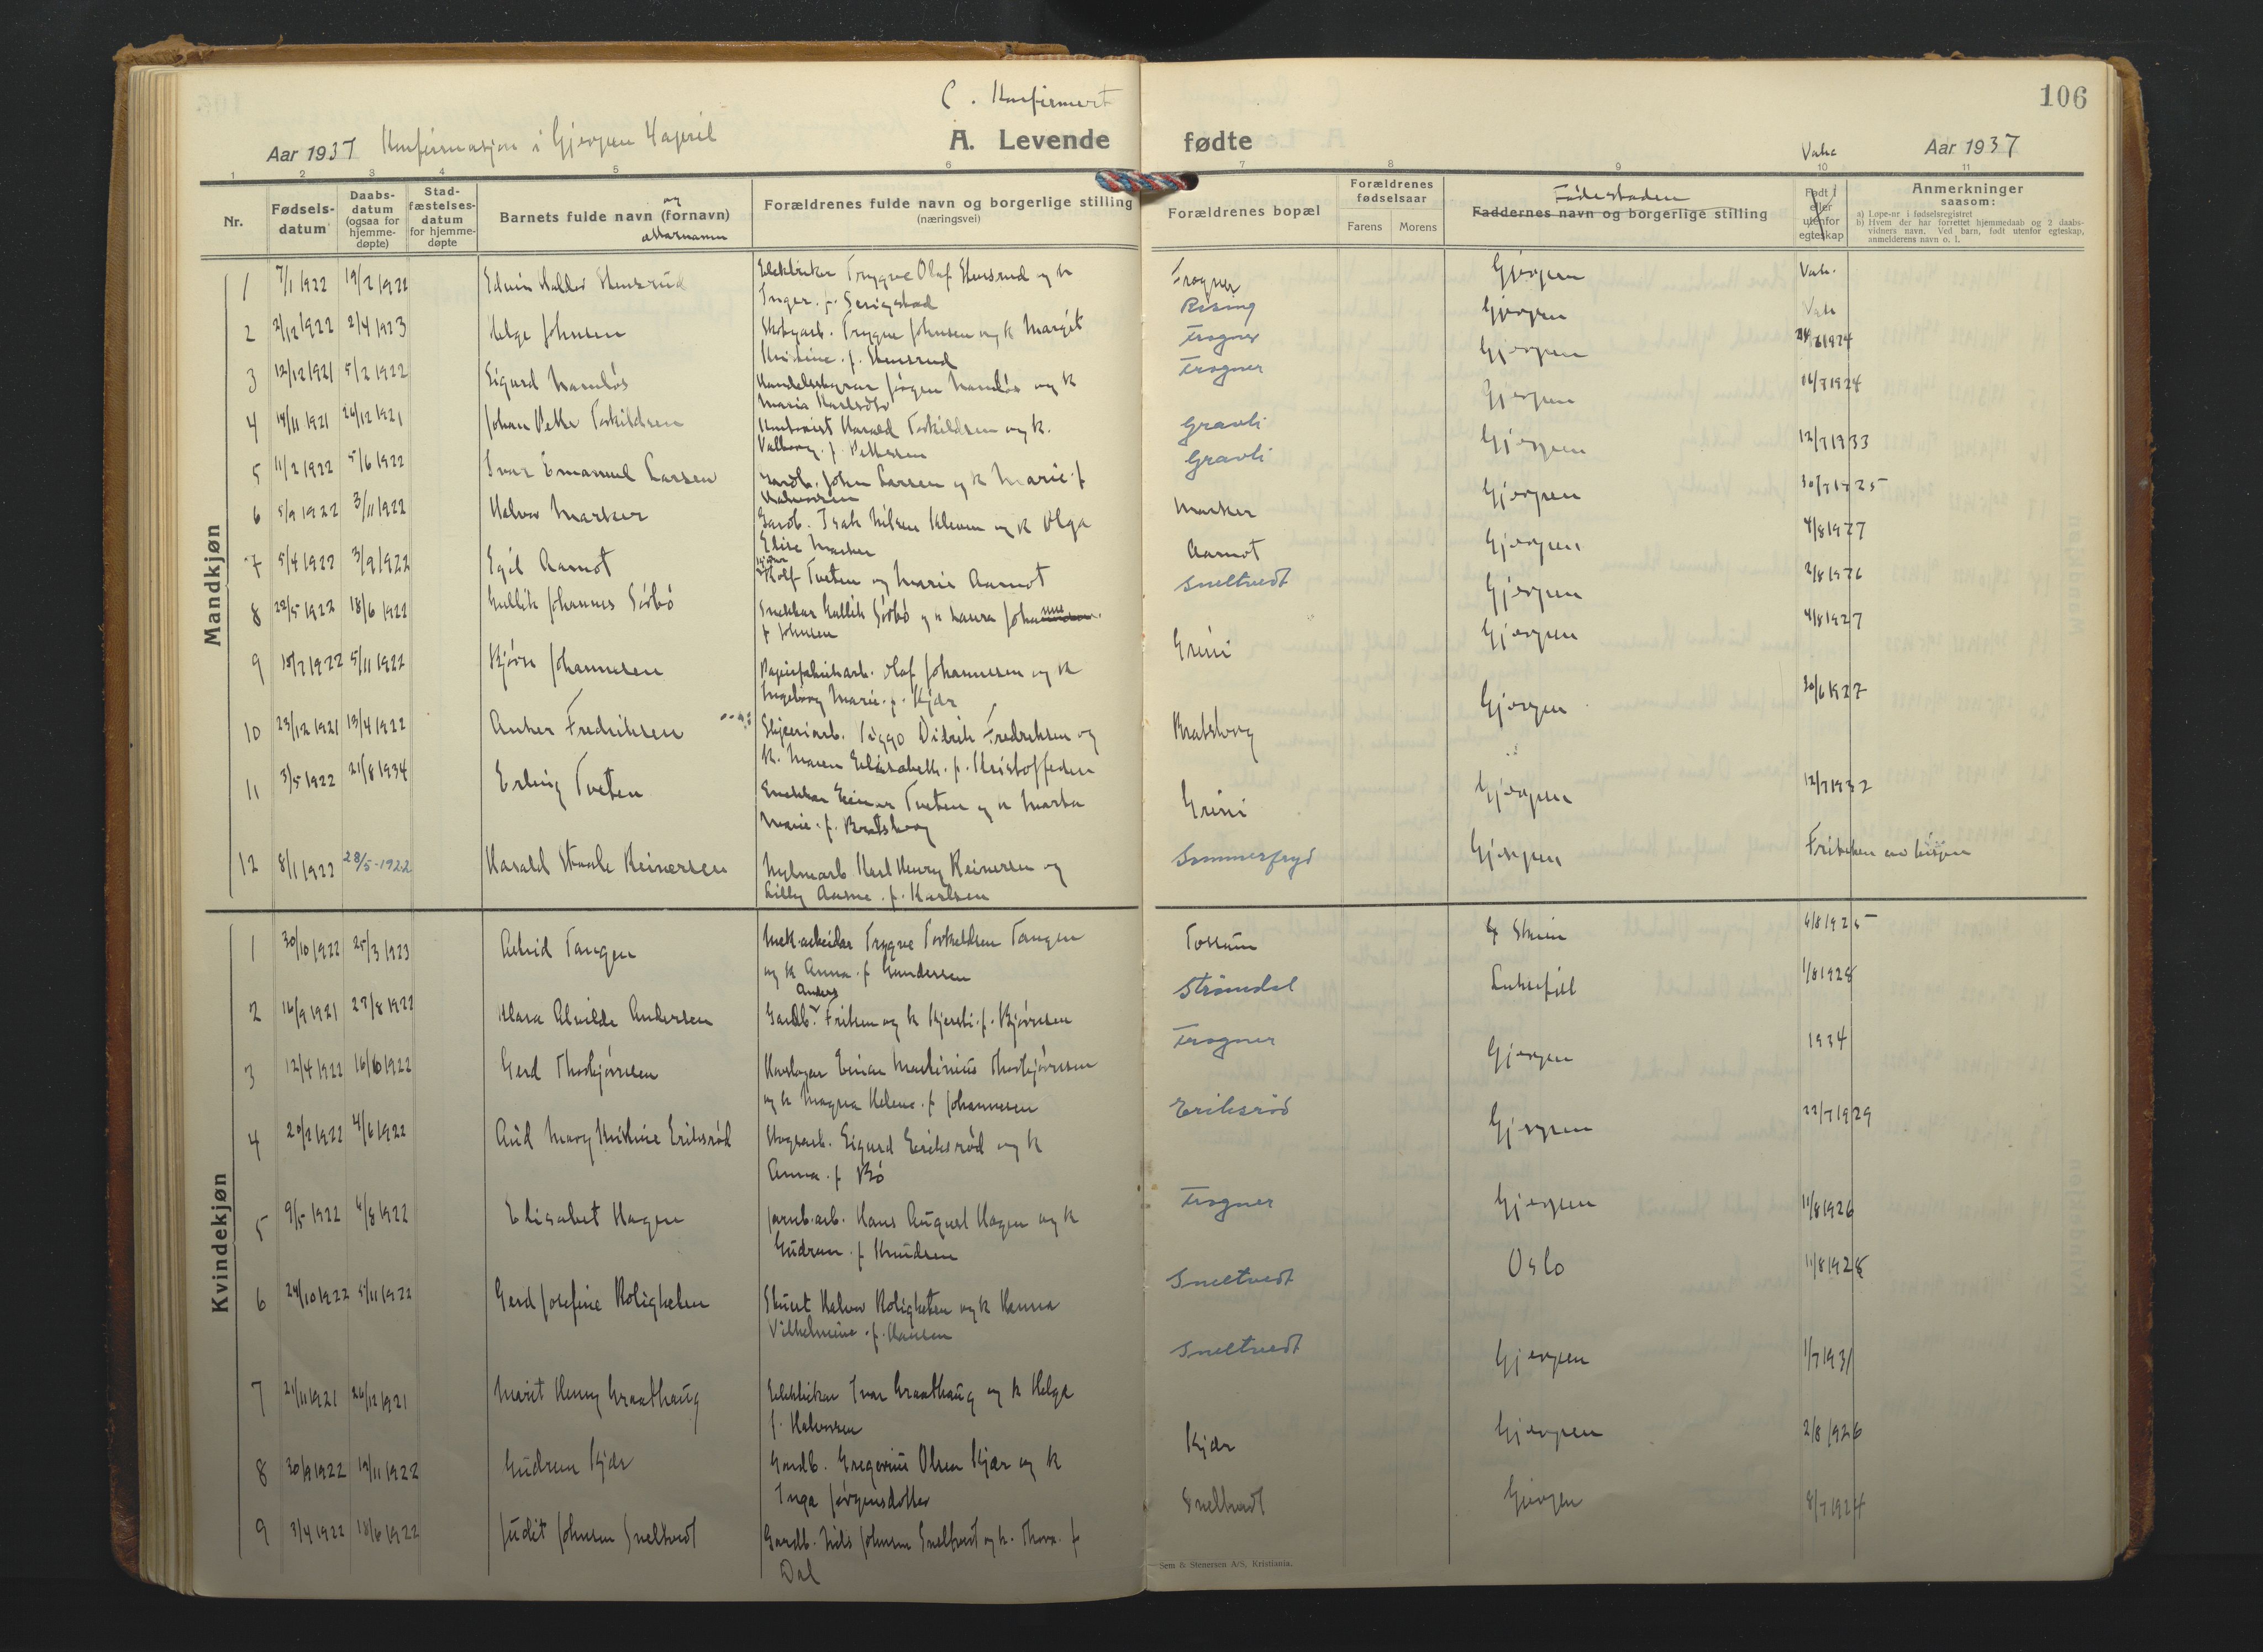 106
C. Konfirmert
Aar 1937 Konfirmasjon i Gjerpen 4 april
A. Levende fødte
Vaks
Aar 1937
1 2 3 4 5 6 7 8 9 10 11
Nr.
Fødsels-
datum
Daabs-
datum
(ogsaa for
hjemme-
døpte)
Stad-
fæstelses-
datum
for hjemme-
døpte
og
Barnets fulde navn (fornavn)
etternamn
Forældrenes fulde navn og borgerlige stilling
(næringsvei)
Forældrenes bopæl
Forældrenes
fødselsaar
Farens Morens
Fødestaden
Faddernes navn og borgerlige stilling
Født i
eller
utenfor
egteskap
Anmerkninger
saasom:
a) Løpe-nr i fødselsregistret
b) Hvem der har forrettet hjemmedaab og 2 daabs-
vidners navn. Ved barn, født utenfor egteskap,
anmelderens navn o. l.
Mandkjøn
1 7/1 1922 19/2 1922 Edvin Hallvor Stensrud Elektriker Trygve Olaf Stensrud og k Frogner Gjerpen Vaks.
Inger f.
2 2/12 1922 2/4 1923 Helge Johnsen Trygve Johnsen og k Margit Rising Gjerpen Vaks
Kristine f. Stensrud Frogner
3 12/12 1921 5/2 1922 Sigurd Namløs Jørgen Namløs og k Frogner Gjerpen 1924
Maria
4 14/11 1921 26/12 1921 Johan Petter Torkildsen Harald Torkildsen og k. Gravli Gjerpen 1924
Valborg f. Pettersen
5 11/2 1922 5/6 1922 Ivar Emanuel Larsen Gardb. John Larsen og k Marie f Gravli Gjerpen 12/7 1933
Halvorsen
6 5/9 1922 3/11 1922 Halvor Marker Gardb. Isak Nilsen Kleven og k Olga Marker Gjerpen 30/7 1925
Elise Marker
7 5/4 1922 3/9 1922 Egil Aamot Rolf Tveten og Marie Aamot Aamot Gjerpen 4/8 1927
8 22/5 1922 18/6 1922 Gullik Johannes Sørbø Snekker Gullik Sørbø og k Laura Johanne Sneltvedt Gjerpen 2/8 1926
f Johnsen
9 15/7 1922 5/11 1922 Bjørn Johannesen Papirfabrikarb. Olaf Johannesen og k Grini Gjerpen 4/8 1927
Ingeborg Marie f. Kjær
10 23/12 1921 13/4 1922 Anker Fredriksen Viggo Didrik Fredriksen og Bratsberg Gjerpen 30/6 1927
k. Maren Elisabeth f. Kristoffersen
11 3/5 1922 21/8 1934 Erling Tveten Snekker Einar Tveten og k Marta Grini Gjerpen 12/7 1932
Marie f. Bratsberg
12 8/1 1922 28/5-1922 Harald Staale Reinersen Karl Henry Reinersen og Sommerfryd Gjerpen
Lilly Aasne f. Karlsen
Kvindekjøn
1 30/10 1922 25/3 1923 Astrid Tangen Mek.arbeider Trygve Torkeldsen Tangen Fossum Skien 6/8 1925
og k Anna f Gundersen
2 16/9 1921 27/8 1922 Klara Alvilde Andersen Gardb. Anders Eriksen og k Kjersti f. Bjørnsen Strømdal Luksefjell 1/8 1928
3 12/4 1922 16/8 1922 Gerd Thorbjørnsen Einar Martinius Thorbjørnsen Frogner Gjerpen 1934
og k Magna Helene f Johannesen
4 20/2 1922 4/6 1922 Aud Mary Kristine Eriksrød Skogsarb. Sigurd Eriksrød og k Eriksrød Gjerpen 22/7 1929
Anna f Bø
5 9/5 1922 6/8 1922 Elisabet Hagen Jernb.arb. Hans August Hagen og k Frogner Gjerpen 11/8 1926
Gudrun f Knudsen
6 24/10 1922 5/11 1922 Gerd Josefine Roligheten Halvor Roligheten og k Hanna Sneltvedt Oslo 11/8 1928
Vilhelmine f. Hansen
7 21/11 1921 26/12 1921 Marit Henny Graathaug Elektriker Ivar Graathaug og k Helga Sneltvedt Gjerpen 1/7 1931
f. Halvorsen
8 30/9 1922 19/11 1922 Gudrun Kjær Gardb. Gregorius Olsen Kjær og k Kjær Gjerpen 2/8 1926
Inga Jørgensdotter
9 3/4 1922 18/6 1922 Judit Johnsen Sneltvedt Gardb. Nils Johnsen Sneltvedt og k. Thora f Sneltvedt Gjerpen 8/7 1924
Dal
Sem & Stenersen A/S, Kristiania.